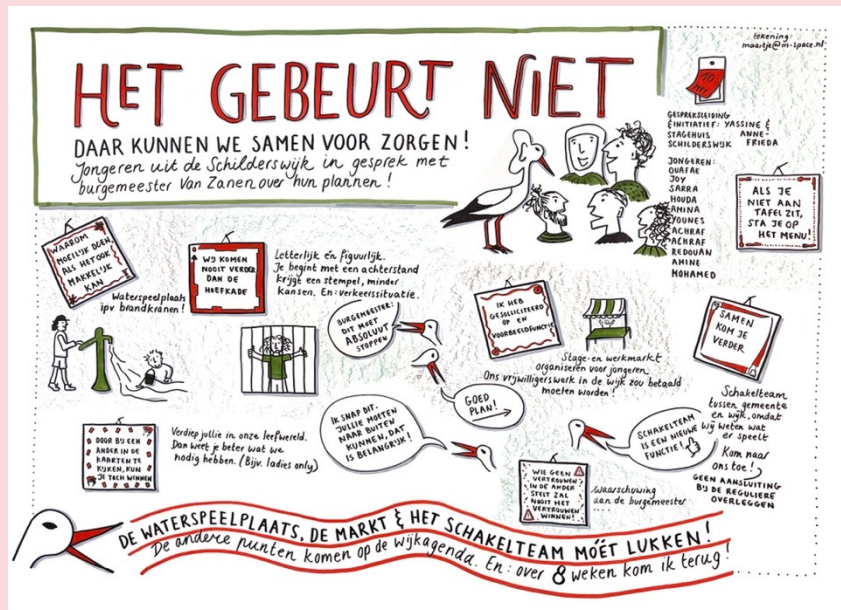 tekening:
maartje@m-space.nl
HET GEBEURT NIET
DAAR KUNNEN WE SAMEN VOOR ZORGEN!
Jongeren uit de Schilderswijk in gesprek met
burgemeester Van Zanen over hun plannen!
10
MEI
GESPREKSLEIDING
& INITIATIEF: YASSINE &
STAGEHUIS ANNE-
SCHILDERSWIJK FRIEDA
JONGEREN:
OUAFAE
JOY
SARRA
HOUDA
AMINA
YOUNES
ACHRAF
ACHRAF
REDOUAN
AMINE
MOHAMED
ALS JE
NIET AAN
TAFEL ZIT,
STA JE OP
HET MENU!
WAAROM
MOEILIJK DOEN,
ALS HET OOK
MAKKELIJK
KAN
Waterspeelplaats
ipv brandkranen!
WIJ KOMEN
NOOIT VERDER
DAN DE
HOEFKADE
Letterlijk én figuurlijk.
Je begint met een achterstand
krijgt een stempel, minder
kansen. En: verkeerssituatie.
BURGEMEESTER:
DIT MOET
ABSOLUUT
STOPPEN
IK HEB
GESOLLICITEERD
OP EEN
VOORBEELDFUNCTIE
Stage- en werkmarkt
organiseren voor jongeren.
Ons vrijwilligerswerk in de wijk zou betaald
moeten worden!
GOED
PLAN!
SAMEN
KOM JE
VERDER
Schakelteam
tussen gemeente
en wijk, omdat
wij weten wat
er speelt
Kom naar
ons toe!
GEEN AANSLUITING
BIJ DE REGULIERE
OVERLEGGEN
DOOR BIJ EEN
ANDER IN DE
KAARTEN TE
KIJKEN, KUN
JE TOCH WINNEN
Verdiep jullie in onze leefwereld.
Dan weet je beter wat we
nodig hebben. (Bijv. ladies only)
IK SNAP DIT.
JULLIE MOETEN
NAAR BUITEN
KUNNEN, DAT
IS BELANGRIJK!
SCHAKELTEAM
IS EEN NIEUWE
FUNCTIE!
WIE GEEN
VERTROUWEN
IN DE ANDER
STELT ZAL
NOOIT HET
VERTROUWEN
WINNEN!
Waarschuwing
aan de burgemeester
....
DE WATERSPEELPLAATS, DE MARKT & HET SCHAKELTEAM MÓÉT LUKKEN!
De andere punten komen op de wijkagenda. En: over 8 weken kom ik terug!